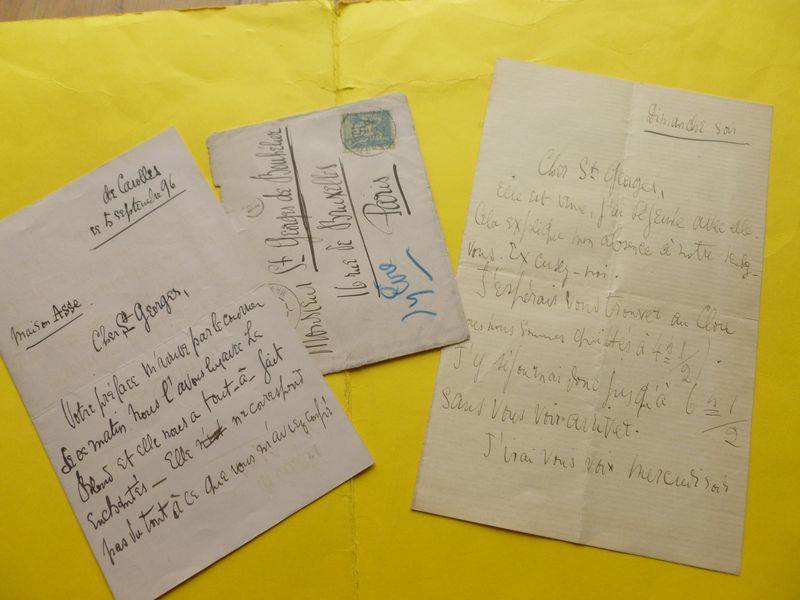 de Carolles
ce 5 septembre 96
Maison Asse
Cher St Georges,
Votre préface m'arrive par le courrier
de ce matin. Nous l'avons lue avec Le
Blond et elle nous a tout-à-fait
Enchantés — Elle ne correspond
pas du tout à ce que vous m'aviez confié
Monsieur St Georges de Bouhélier
16 rue de Bruxelles
Paris
Dimanche soir
Cher St Georges,
Elle est venue, j'ai déjeuné avec elle.
Cela explique mon absence à notre rendez-
vous. Excusez-moi.
J'espérais vous trouver au Clou
nous nous sommes quittés à 4h 1/2.
J'y séjournai donc jusqu'à 6h 1/2
sans vous voir arriver.
J'irai vous voir mercredi soir